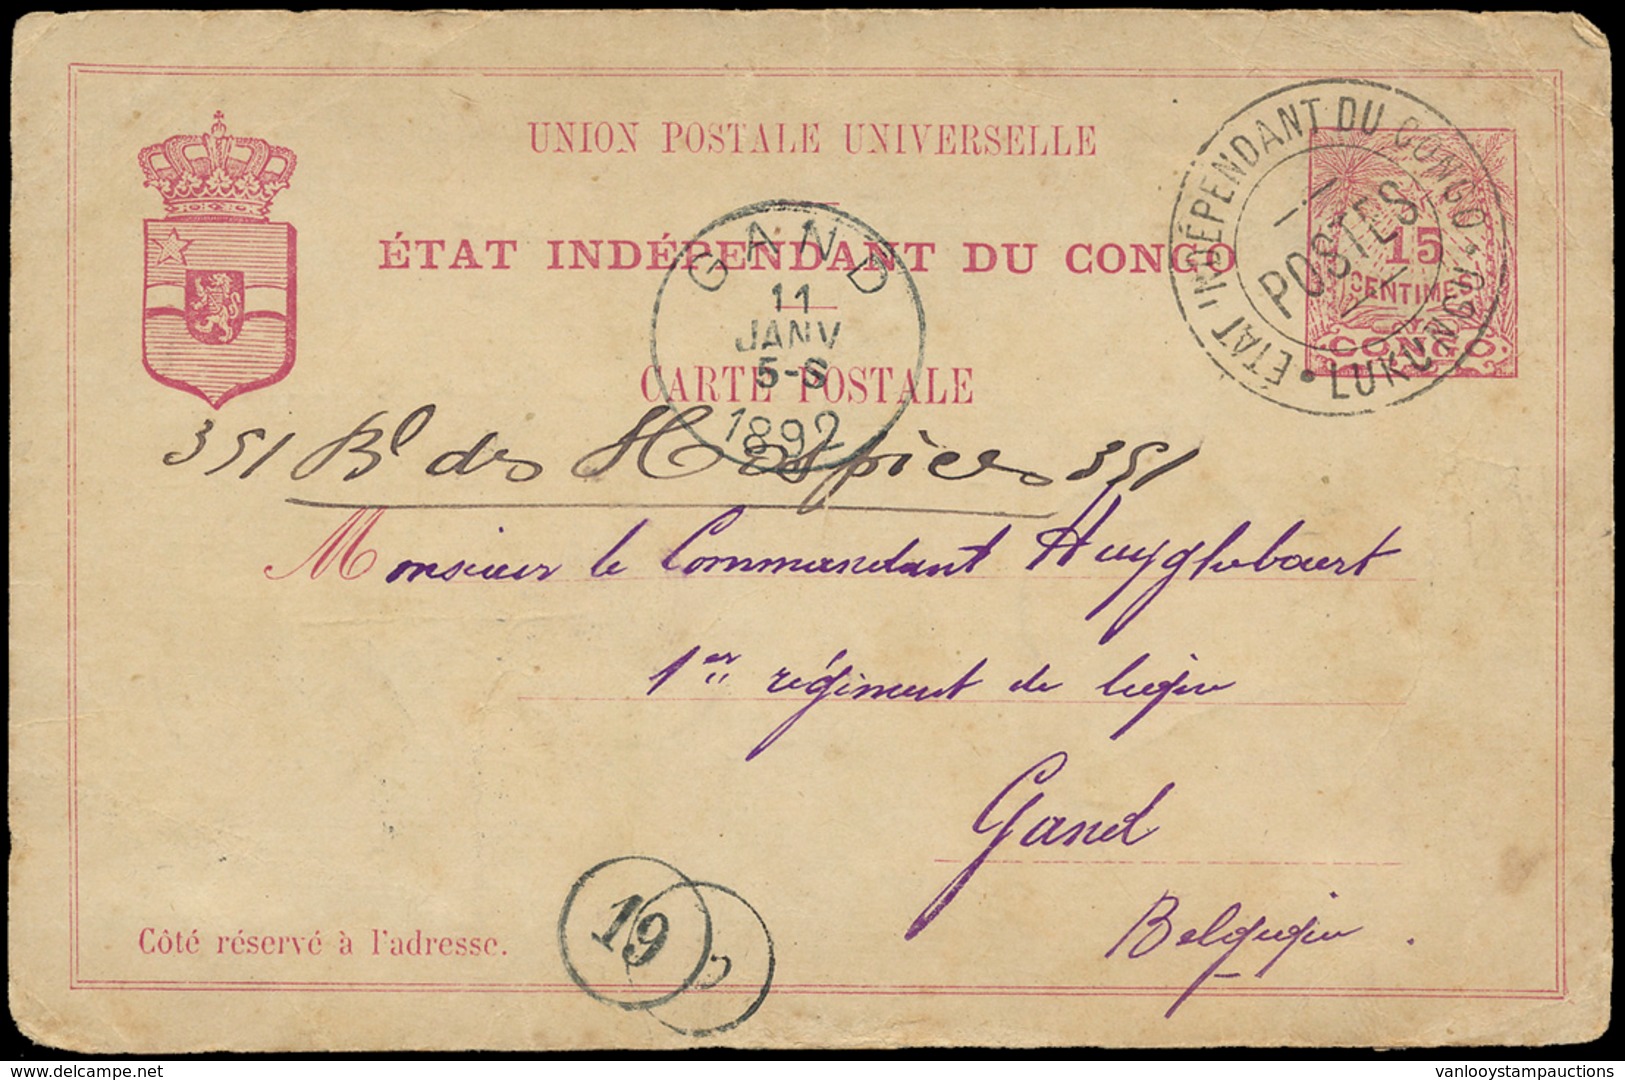 UNION POSTALE UNIVERSELLE
ÉTAT INDÉPENDANT DU CONGO
CARTE POSTALE
ÉTAT INDÉPENDANT DU CONGO • LUKUNGU •
POSTES
15
CENTIMES
CONGO
GAND
11
JANV
5-S
1892
351 Bd des Hospices 351
Monsieur le Commandant Huyghebaert
1er régiment de ligne
Gand
Belgique.
Côté réservé à l'adresse.
19
delcampe.net
vanlooystampauctions